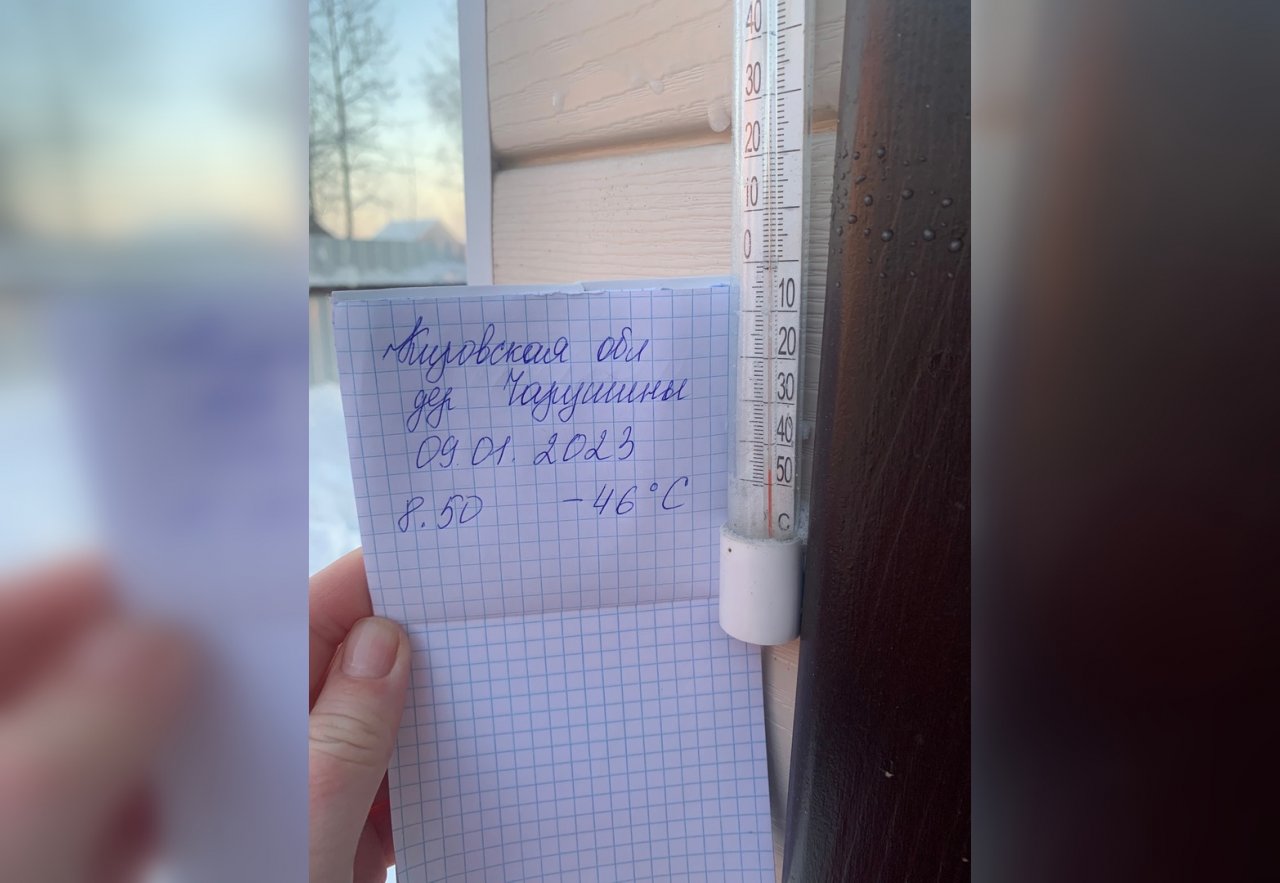 Кировская обл
дер Чарушины
09.01.2023
8.50 -46°C
40
30
20
10
0
10
20
30
40
50
C